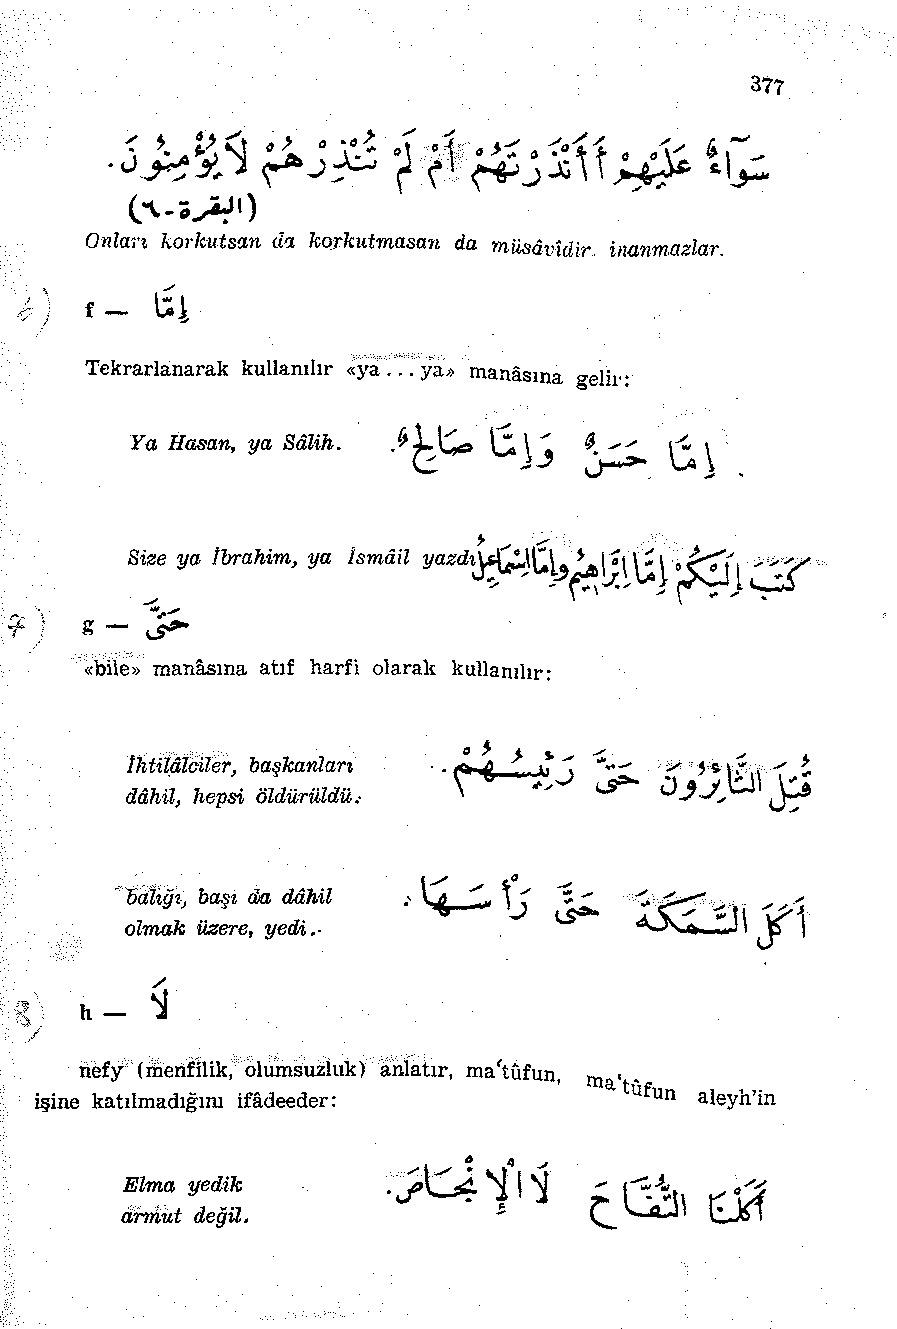 377
سَوَآءٌ عَلَيْهِمْ أَأَنْذَرْتَهُمْ أَمْ لَمْ تُنْذِرْهُمْ لَا يُؤْمِنُونَ.
(البقرة-٦)
Onları korkutsan da korkutmasan da müsâvîdir. inanmazlar.
6) f — إِمَّا
Tekrarlanarak kullanılır «ya ... ya» manâsına gelir:
Ya Hasan, ya Sâlih. إِمَّا حَسَنٌ وَإِمَّا صَالِحٌ.
Size ya İbrahim, ya İsmâil yazdı كَتَبَ إِلَيْكُمْ إِمَّا إِبْرَاهِيمُ وَإِمَّا إِسْمَاعِيلُ
7) g — حَتَّى
«bile» manâsına atıf harfi olarak kullanılır:
İhtilâlciler, başkanları قُتِلَ الثَّائِرُونَ حَتَّى رَئِيسُهُمْ.
dâhil, hepsi öldürüldü.
balığı, başı da dâhil أَكَلَ السَّمَكَةَ حَتَّى رَأْسَهَا.
olmak üzere, yedi.
8) h — لَا
nefy (menfilik, olumsuzluk) anlatır, ma'tûfun, ma'tûfun aleyh'in
işine katılmadığını ifâdeeder:
Elma yedik أَكَلْنَا التُّفَّاحَ لَا الْإِنْجَاصَ.
armut değil.